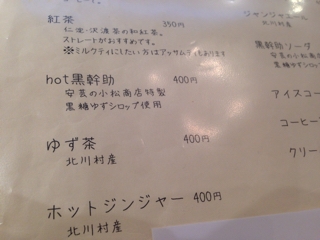 紅茶 350円
仁淀・沢渡茶の和紅茶。
ストレートがおすすめです。
※ミルクティにしたい方はアッサムティもあります
hot黒幹助 400円
安芸の小松商店特製
黒糖ゆずシロップ使用
ゆず茶 400円
北川村産
ホットジンジャー 400円
北川村産
ジャンジャエール
北川村産
黒幹助ソーダ
安芸の小松
黒糖ゆず
アイスコー
コーヒー
クリー